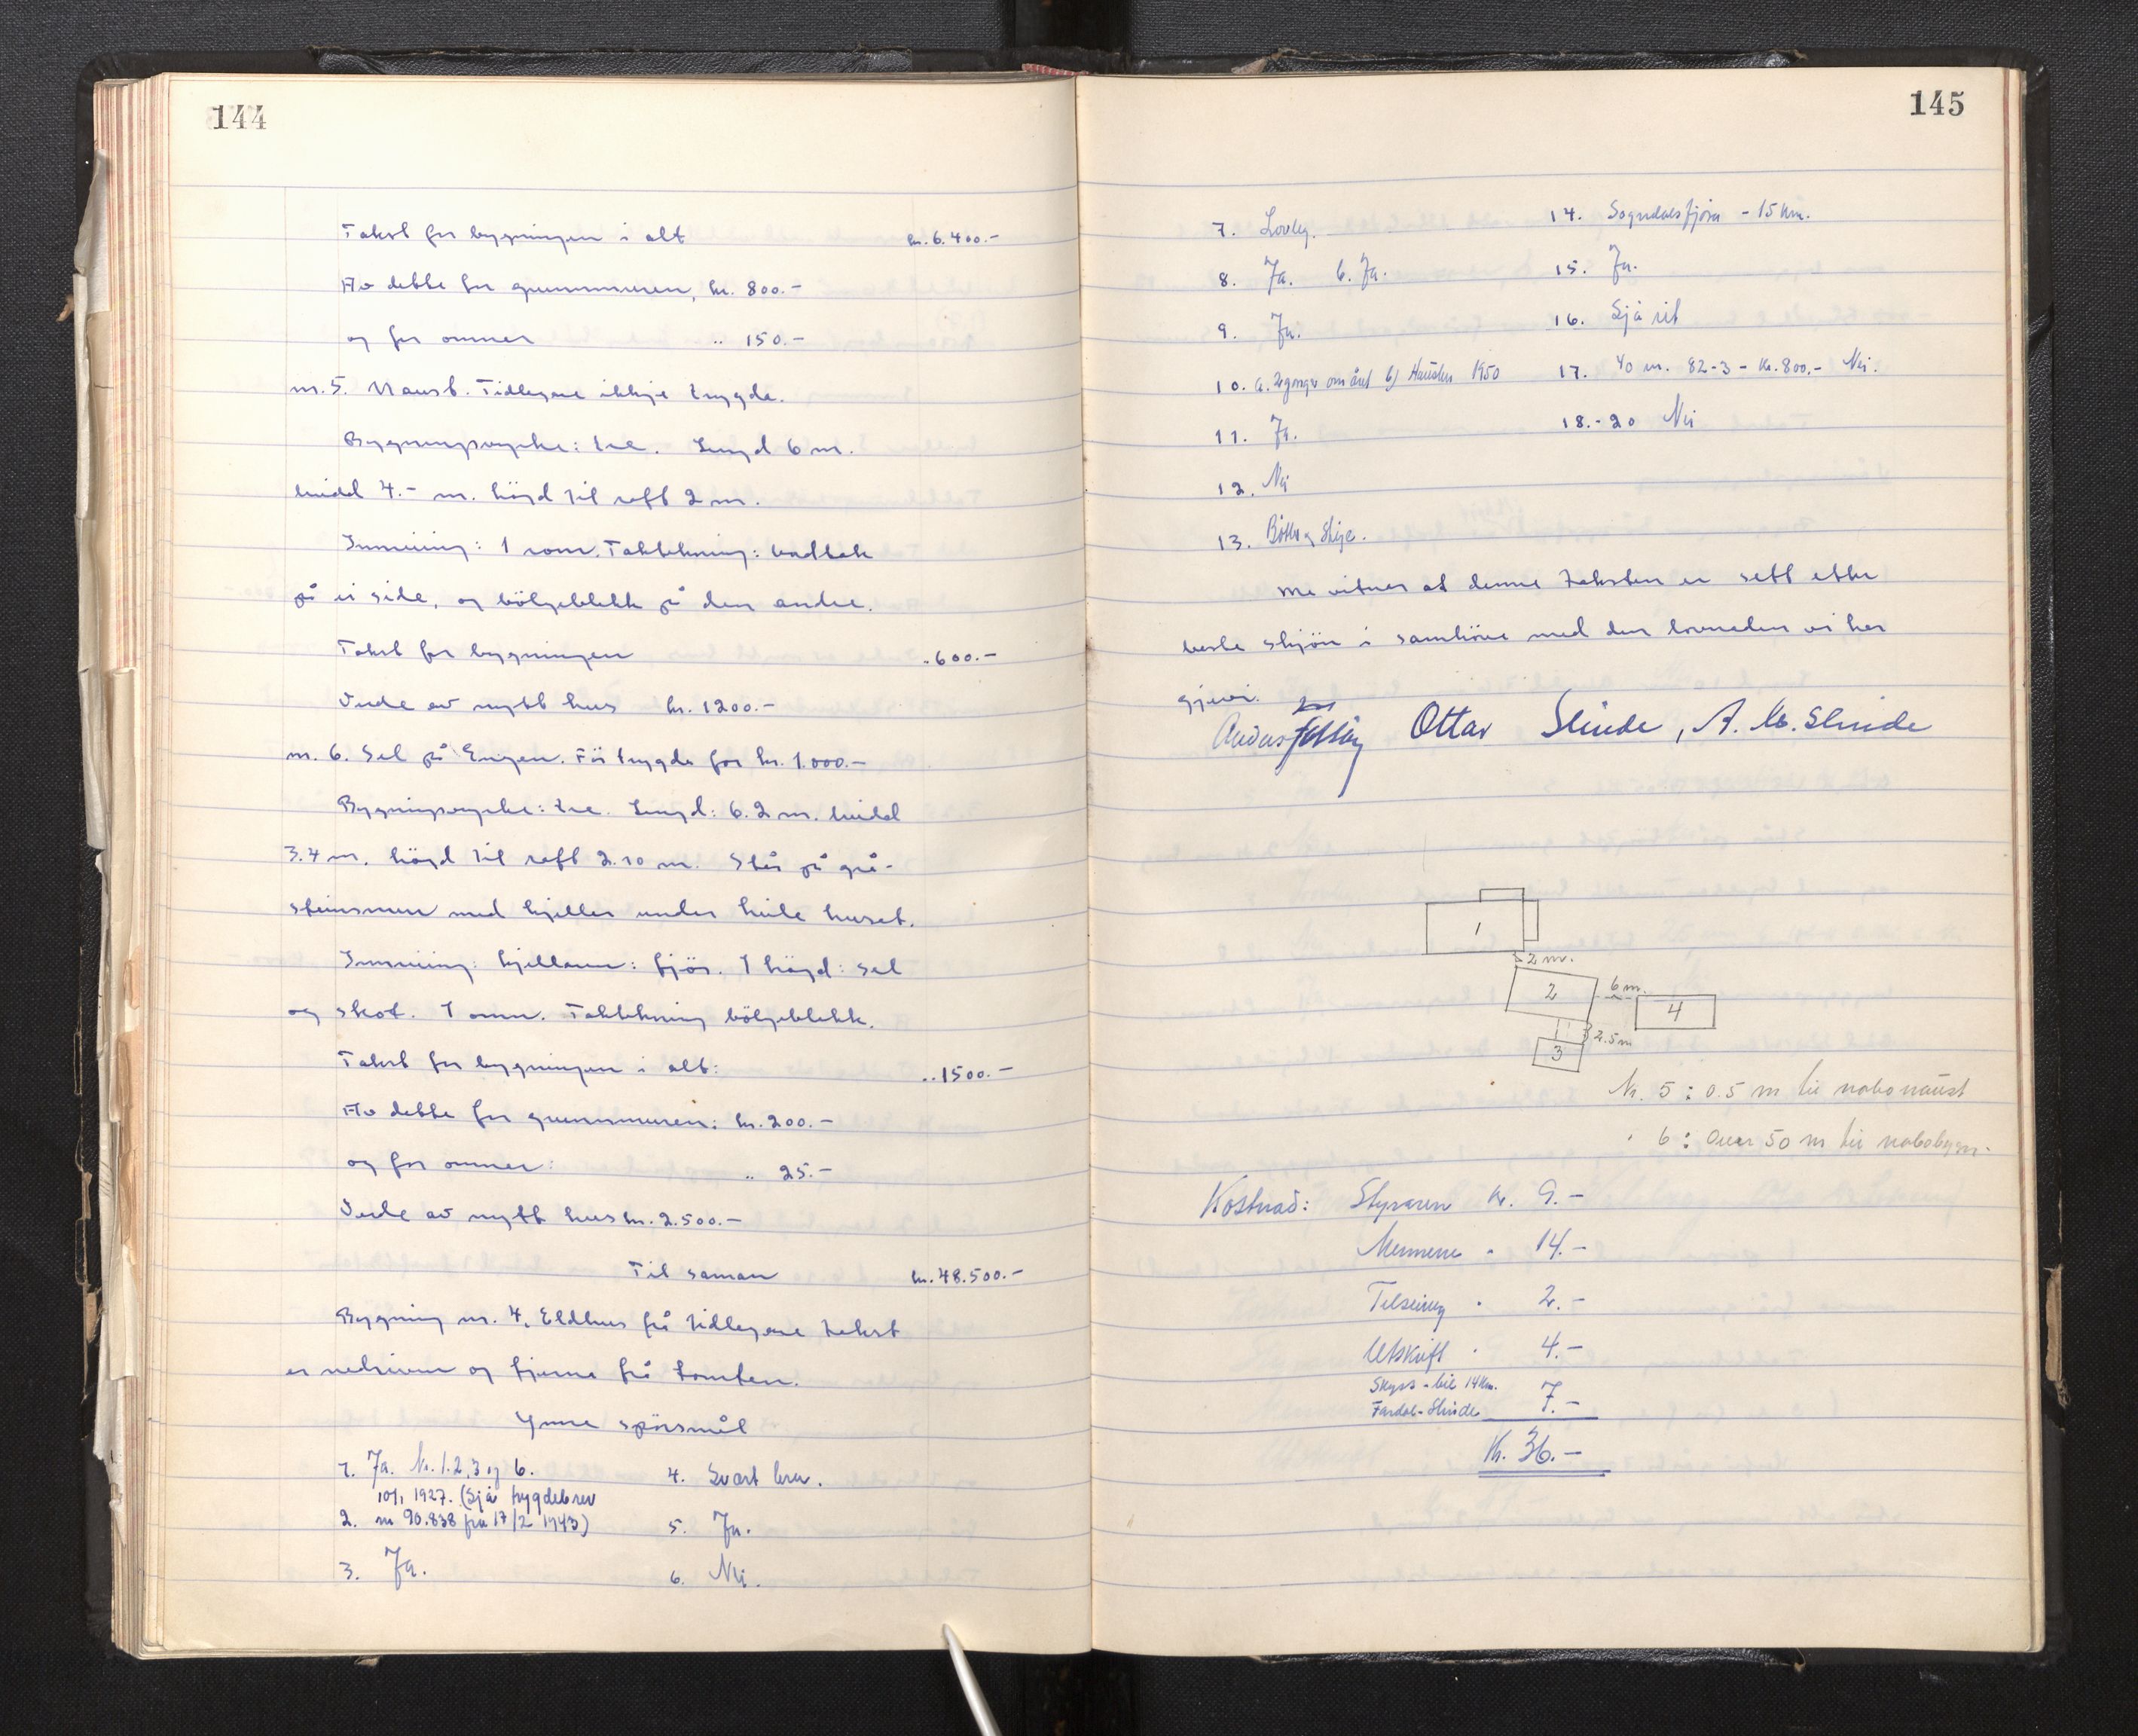 144
Takst for bygningen i alt kr. 6.400.-
Av dette for grunnmuren, kr. 800.-
og for omner " 150.-
nr. 5. Naust. Tidlegare ikkje trygda.
Bygningsmåte: tre. Lengd 6 m.
breidd 4.- m. högd til raft 2 m.
Innreiing: 1 rom. Taktekning:
på ei side, og bölgeblekk på den andre.
Takst for bygningen " 600.-
Verde av nytt hus kr. 1200.-
nr. 6. Sel på Engen. För trygda for kr. 1.000.-
tre. Lengd: 6.2 m. breidd
3.4 m. högd til raft 2.10 m. Står på grå-
steinsmur med kjellar under heile huset.
Innreiing: kjellaren: fjös. 1 högd: sel
og skot. 1 omn. Taktekning bölgeblekk.
Takst for bygningen i alt: " 1500.-
Av dette for grunnmuren: kr. 200.-
og for omner: " 25.-
Verde av nytt hus kr. 2.500.-
Til saman kr. 48.500.-
Bygning nr. 4, Eldhus frå tidlegare takst
er nedriven og fjerna frå tomten.
Ymse spörsmål
1. Ja. Nr. 1.2,3 og 6.
2. 10/1 1927. (Sjå trygdebrev
nr 90.838 frå 17/2 1943)
3. Ja.
4. Svært brev.
5. Ja.
6. Nei.
145
7. Lovleg.
8. Ja. b. Ja.
9. Ja.
10. a. 2 gonger om året b) Hausten 1950
11. Ja.
12. Nei
13. Bötte og stige.
14. Sogndalsfjöra - 15 km.
15. Ja.
16. Sjå rit
17. 40 m. 82-3 - kr. 800.- Nei.
18.-20 Nei
Me vitner at denne taksten er sett etter
beste skjön i samhöve med den lovnaden vi har
gjevi.
Ottar Slinde, A. M. Slinde
1
2 m.
2
6 m.
4
2.5 m
3
Nr. 5: 0.5 m til nabonaust
" 6: Over 50 m til nabobygn.
Kostnad: Styraren kr. 9.-
Mennene " 14.-
Tilseing " 2.-
Utskrift " 4.-
Skyss - bil 14 km.
Fardal-Slinde 7.-
Kr. 36.-